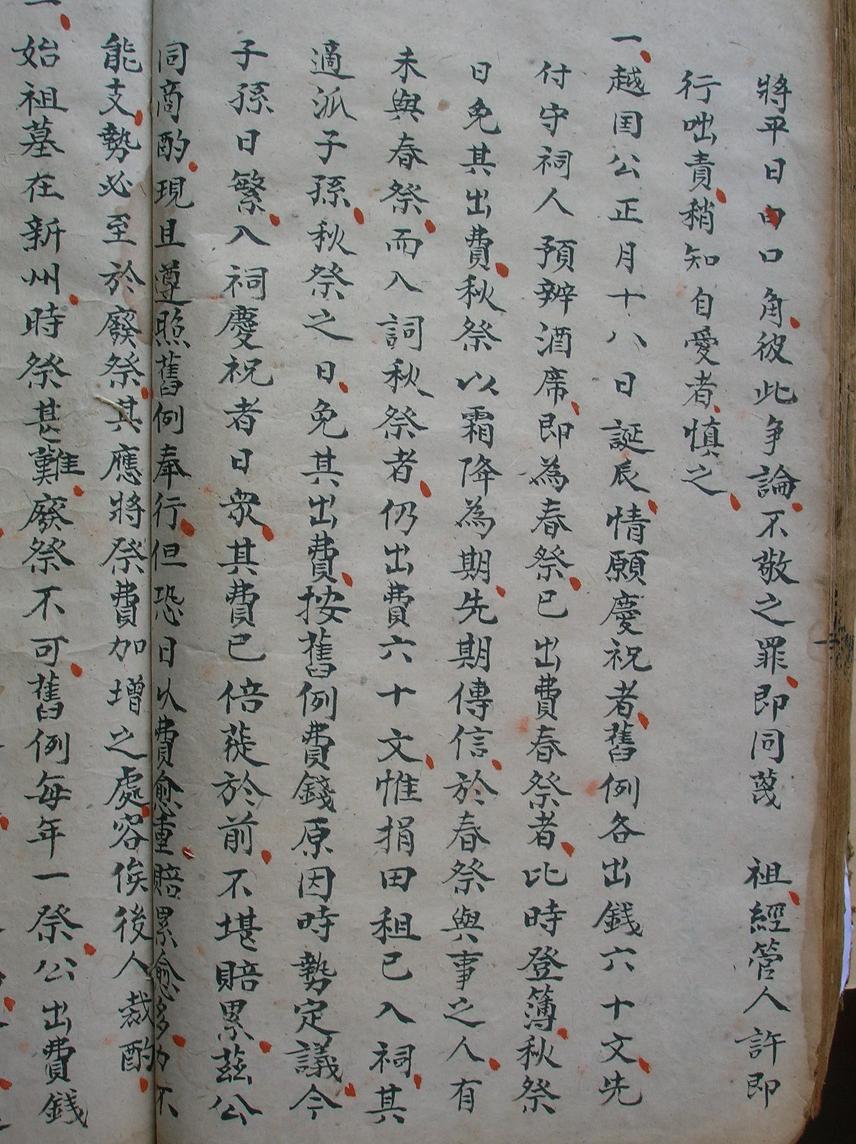 將平日口角彼此爭論不敬之罪即同蔑　祖經管人許即
行咄責稍知自愛者慎之
一越囯公正月十八日誕辰情願慶祝者舊例各出錢六十文先
付守祠人預辦酒席即為春祭已出費春祭者比時登簿秋祭
日免其出費秋祭以霜降為期先期傳信於春祭與事之人有
未與春祭而入詞秋祭者仍出費六十文惟捐田租已入祠其
適派子孫秋祭之日免其出費按舊例費錢原因時勢定議今
子孫日繁入祠慶祝者日衆其費已倍蓰於前不堪賠累茲公
同商酌現且遵照舊例奉行但恐日久費愈重賠累愈多力不
能支勢必至於廢祭其應將祭費加增之處容俟後人裁酌
始祖墓在新州時祭甚難廢祭不可舊例每年一祭公出費錢
一